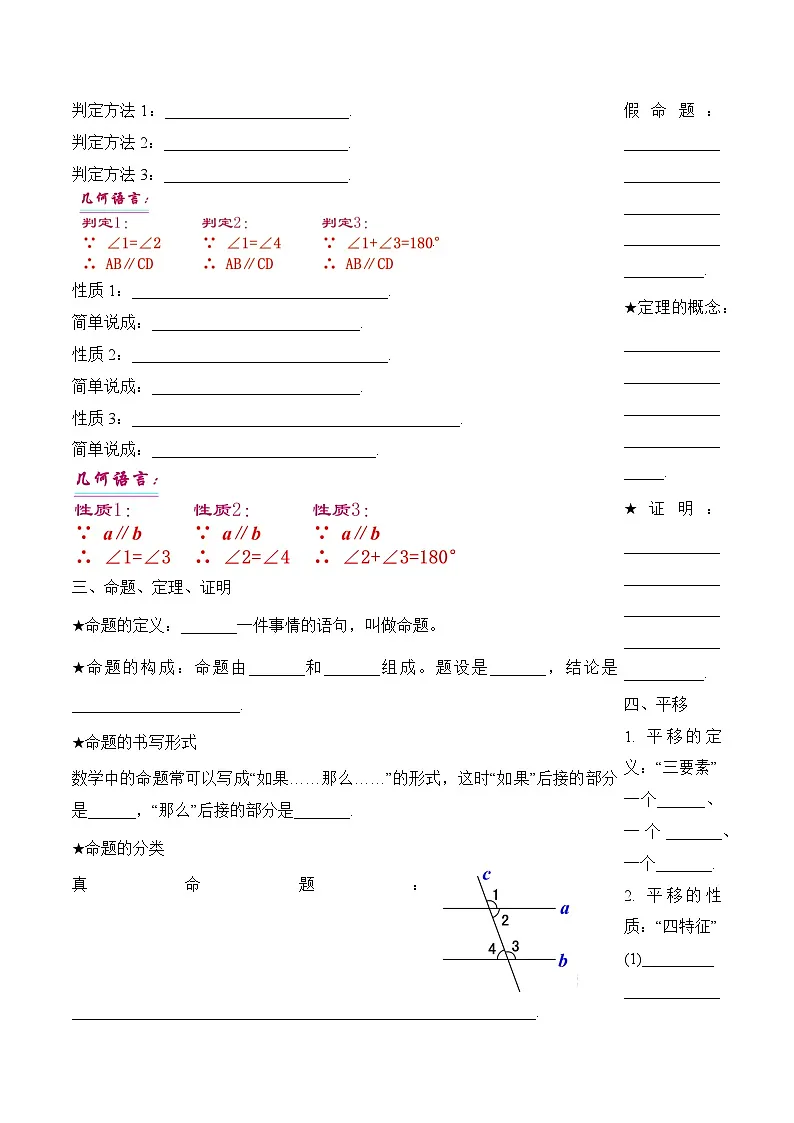 判定方法 1：_______________________.
判定方法 2：_______________________.
判定方法 3：_______________________.
几何语言：
判定1： 判定2： 判定3：
∵ ∠1=∠2 ∵ ∠1=∠4 ∵ ∠1+∠3=180°
∴ AB∥CD ∴ AB∥CD ∴ AB∥CD
性质 1：________________________________.
简单说成：__________________________.
性质 2：________________________________.
简单说成：__________________________.
性质 3：_________________________________________.
简单说成：____________________________.
几何语言：
性质1： 性质2： 性质3：
∵ a∥b ∵ a∥b ∵ a∥b
∴ ∠1=∠3 ∴ ∠2=∠4 ∴ ∠2+∠3=180°
三、命题、定理、证明
★命题的定义：_______一件事情的语句，叫做命题。
★命题的构成：命题由_______和_______组成。题设是_______，结论是
_____________________.
★命题的书写形式
数学中的命题常可以写成“如果……那么……”的形式，这时“如果”后接的部分
是______，“那么”后接的部分是_______.
★命题的分类
真命题：
c
1
a
2
4 3
b
__________________________________________________________.
假命题：
____________
____________
____________
____________
__________.
★定理的概念：
____________
____________
____________
____________
_____.
★证明：
____________
____________
____________
____________
__________.
四、平移
1. 平移的定
义：“三要素”
一个______、
一个_______、
一个_______.
2. 平移的性
质：“四特征”
(1)_________
____________